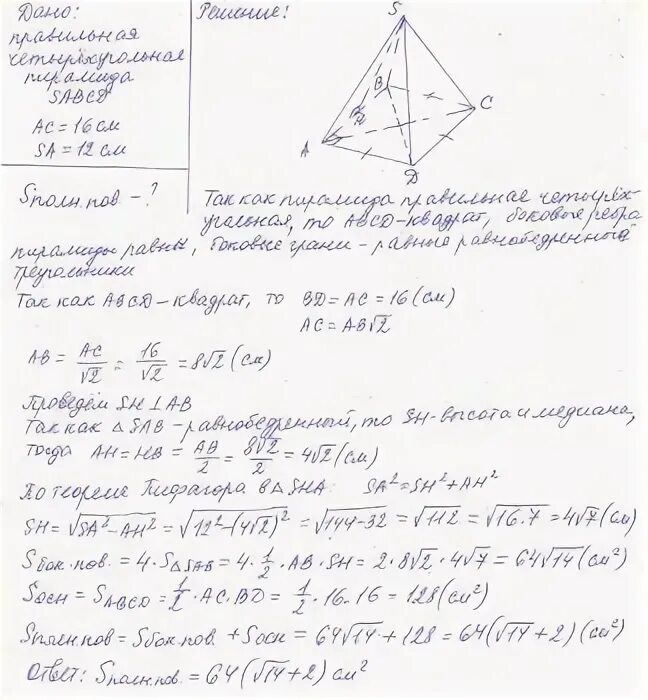 Дано:
правильная
четырёхугольная
пирамида
SABCD
AC = 16 см
SA = 12 см
Sполн.пов – ?
Решение:
S
B
C
H
A
D
Так как пирамида правильная четырёх-
угольная, то ABCD – квадрат, боковые ребра
пирамиды равны, боковые грани – равные равнобедренные
треугольники
Так как ABCD – квадрат, то BD = AC = 16 (см)
AC = AB√2
AB = AC/√2 = 16/√2 = 8√2 (см)
Проведём SH ⊥ AB
Так как △SAB – равнобедренный, то SH – высота и медиана,
тогда AH = HB = AB/2 = 8√2/2 = 4√2 (см)
По теореме Пифагора в △SHA: SA² = SH² + AH²
SH = √(SA² – AH²) = √(12² – (4√2)²) = √(144 – 32) = √112 = √(16·7) = 4√7 (см)
Sбок.пов. = 4 · S△SAB = 4 · 1/2 · AB · SH = 2 · 8√2 · 4√7 = 64√14 (см²)
Sосн = SABCD = 1/2 · AC · BD = 1/2 · 16 · 16 = 128 (см²)
Sполн.пов = Sбок.пов. + Sосн = 64√14 + 128 = 64(√14 + 2) (см²)
Ответ: Sполн.пов. = 64(√14 + 2) см²